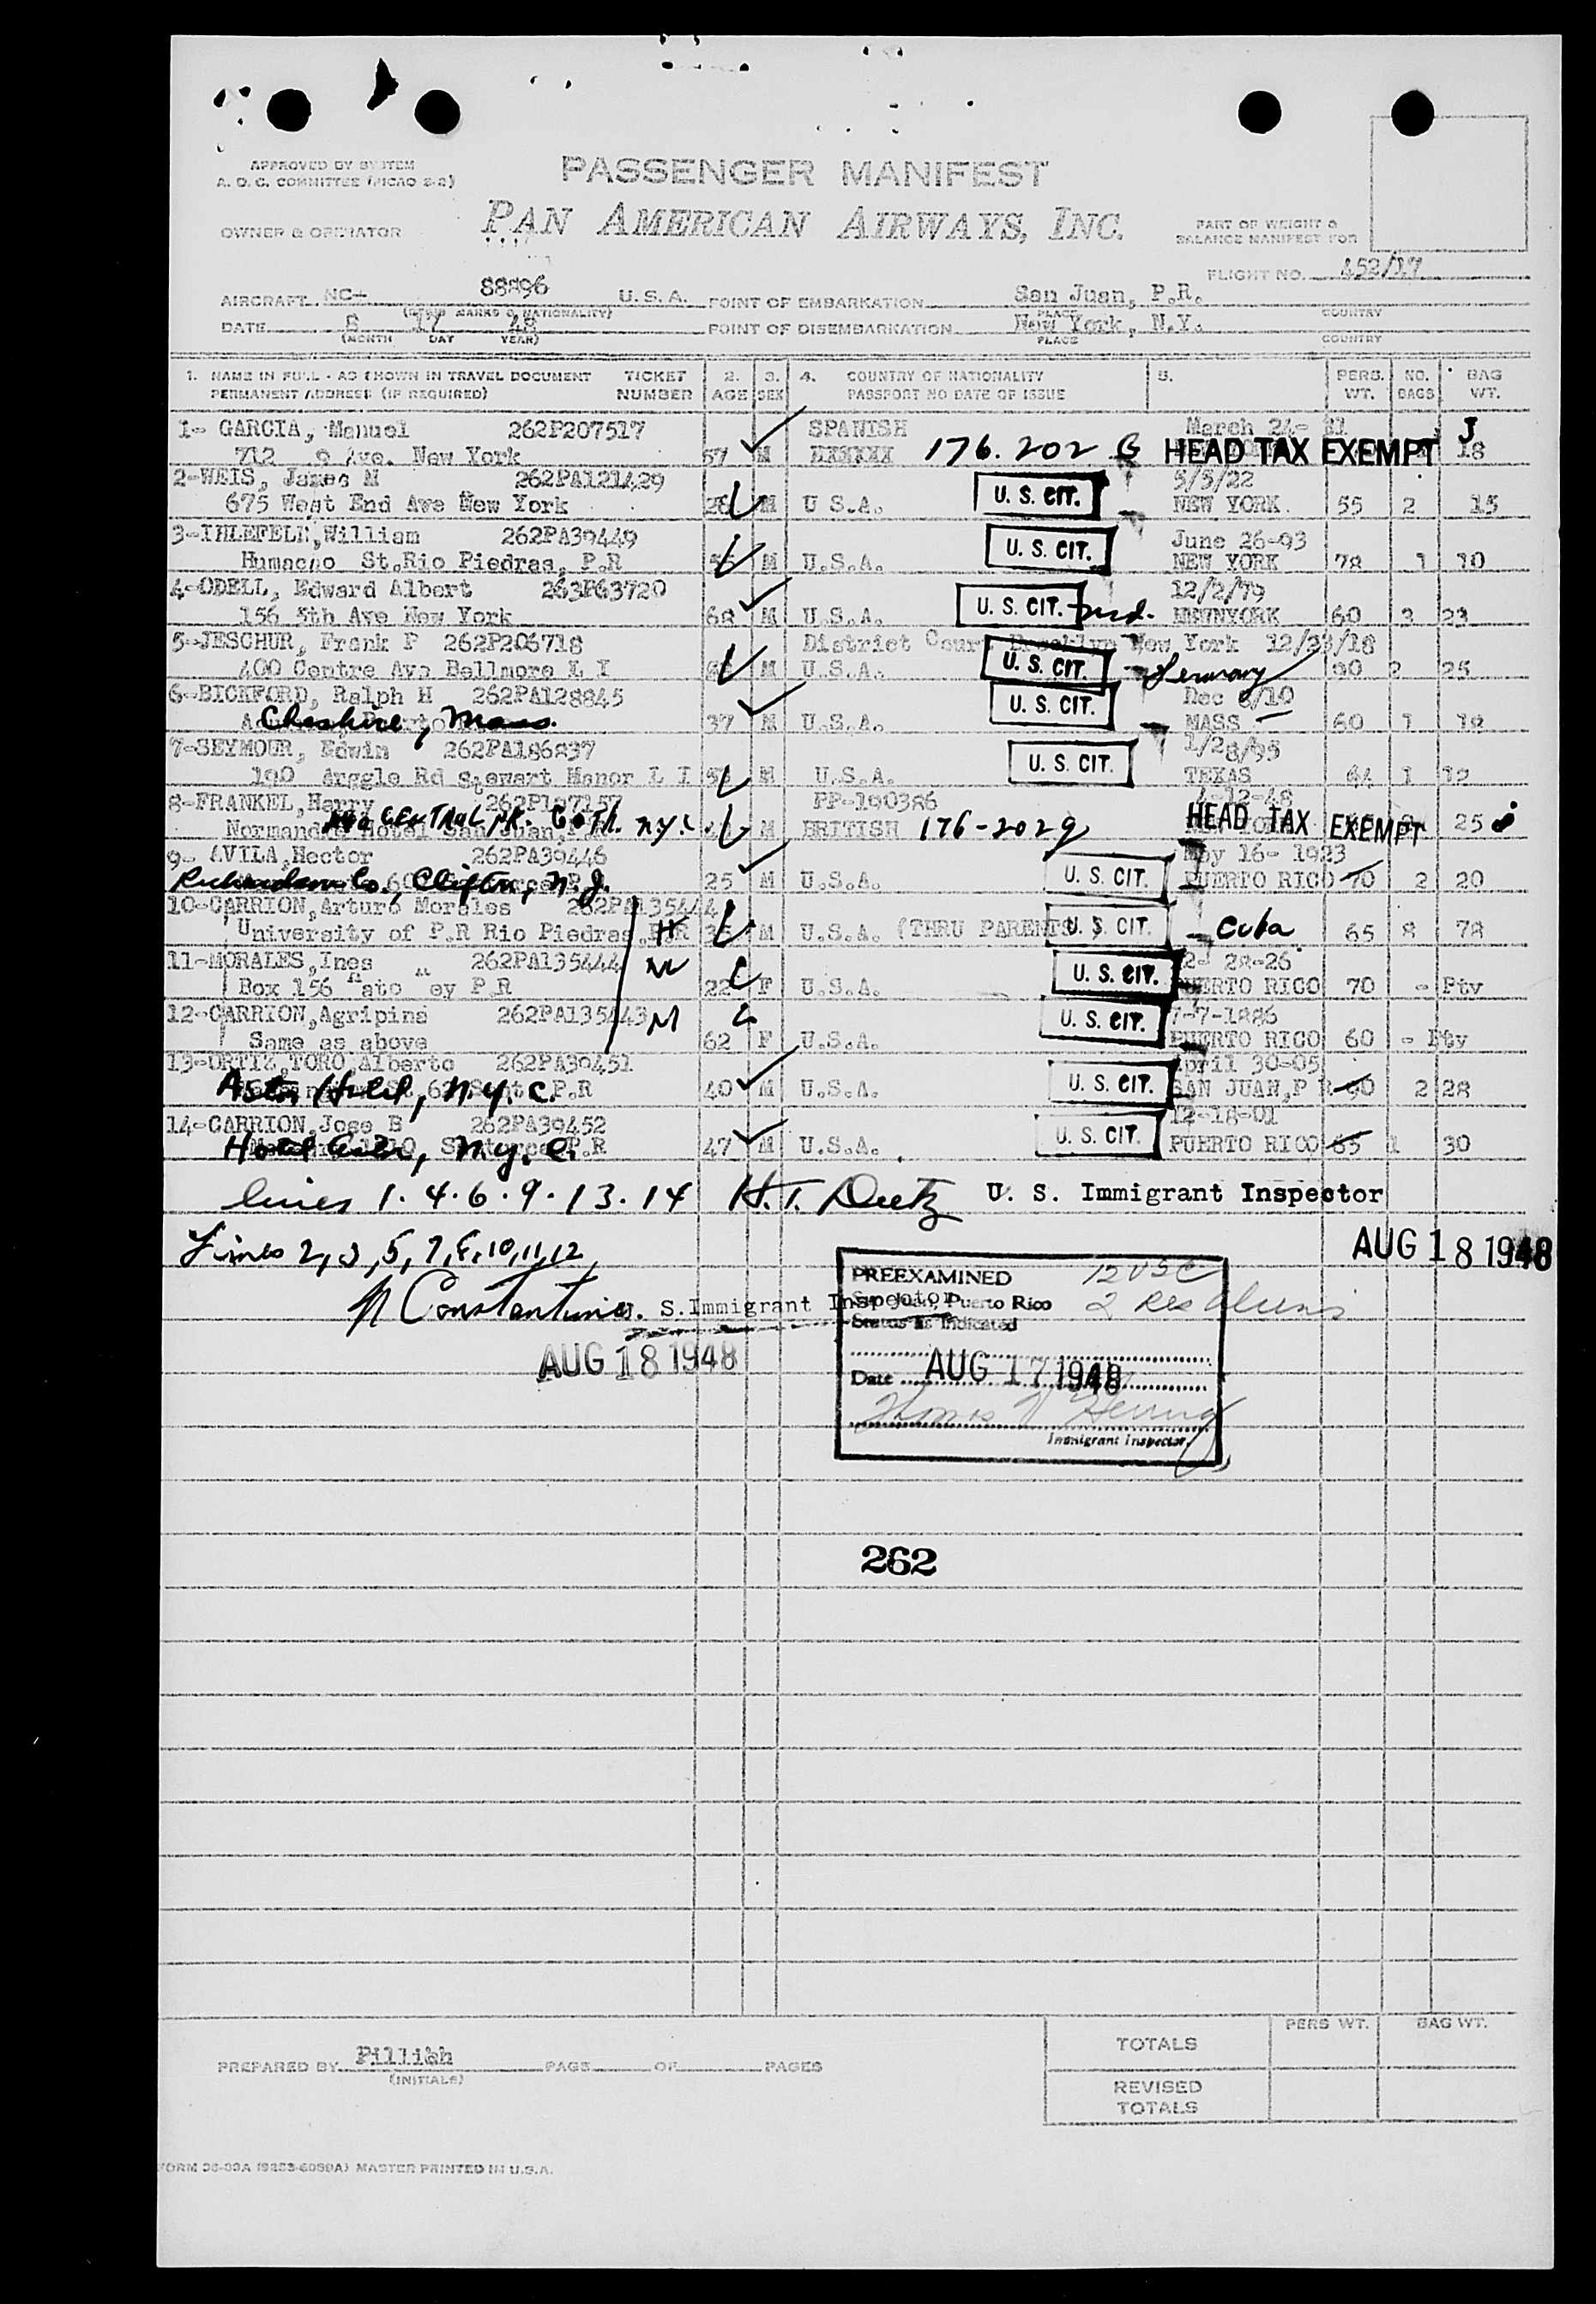 APPROVED BY SYSTEM
A. O. C. COMMITTEE (PICAO 2-2)
PASSENGER MANIFEST
OWNER & OPERATOR PAN AMERICAN AIRWAYS, INC.
PART OF WEIGHT &
BALANCE MANIFEST FOR
FLIGHT NO. 452/17
AIRCRAFT NC- 88896 U. S. A. POINT OF EMBARKATION San Juan, P.R.
MARKS & NATIONALITY) PLACE COUNTRY
DATE 8 17 48 POINT OF DISEMBARKATION New York, N.Y.
(MONTH DAY YEAR) PLACE COUNTRY
1. NAME IN FULL - AS SHOWN IN TRAVEL DOCUMENT TICKET 2. 3. 4. COUNTRY OF NATIONALITY 5. PERS. NO. BAG
PERMANENT ADDRESS (IF REQUIRED) NUMBER AGE SEX PASSPORT NO DATE OF ISSUE WT. BAGS WT.
1- GARCIA, Manuel 262P207517 SPANISH March 24-
712 9 Ave. New York 57 M 176.202 G HEAD TAX EXEMPT 18
2-WEIS, James M 262PA121429 5/5/22
675 West End Ave New York 26 M U S.A. U. S. CIT. NEW YORK 55 2 15
3-IHLEFELD,William 262PA39449 June 26-93
Humacao St.Rio Piedras, P.R M U.S.A. U. S. CIT. NEW YORK 78 1 10
4-ODELL, Edward Albert 263P63720 12/2/79
156 5th Ave New York 68 M U.S.A. U. S. CIT. NEWYORK 60 3 23
5-JESCHUR, Frank P 262P206718 District Court Brooklyn New York 12/23/18
400 Centre Ave Bellmore L I M U.S.A. U. S. CIT. Germany 90 2 25
6-BICKFORD, Ralph H 262PA128845 Dec 8/10
Cheshire, Mass. 37 M U.S.A. U. S. CIT. MASS 60 1 18
7-SEYMOUR, Edwin 262PA186837 1/28/95
190 Arggle Rd Stewart Manor L I 53 M U.S.A. U. S. CIT. TEXAS 64 1 12
8-FRANKEL,Harry 262P197157 PP-190386 4-12-48
CENTRAL PK. South. N.Y.C. M BRITISH 176-202g HEAD TAX EXEMPT 25
9- AVILA,Hector 262PA39446 May 16- 1923
Richardson Co., Clifton, N.J. 25 M U.S.A. U. S. CIT. PUERTO RICO 70 2 20
10-CARRION,Arturo Morales 262PA135444
University of P.R Rio Piedras,P.R H 35 M U.S.A. (THRU PARENTS) U. S. CIT. Cuba 65 8 78
11-MORALES,Ines " 262PA135444 M 2- 28-26
Box 156 Hato ey P.R 22 F U.S.A. U. S. CIT. PUERTO RICO 70 - Pty
12-CARRION,Agripina 262PA135443 M 7-7-1886
Same as above 62 F U.S.A. U. S. CIT. PUERTO RICO 60 - Pty
13-ORTIZ,TORO,Alberto 262PA39451 April 30-05
Astor Hotel, N.Y.C. P.R 40 M U.S.A. U. S. CIT. SAN JUAN,P R 90 2 28
14-CARRION,Jose B 262PA39452 12-18-01
Hotel Astor, N.Y.C. P.R 47 M U.S.A. U. S. CIT. PUERTO RICO 85 1 30
lines 1. 4. 6. 9. 13. 14 H.T. Deetz U. S. Immigrant Inspector
Lines 2, 3, 5, 7, 8, 10, 11, 12 AUG 18 1948
N Constantine U. S.Immigrant Inspector
AUG 18 1948
PREEXAMINED 12 USC
San Juan, Puerto Rico 2 Res Aliens
Status as Indicated
Date AUG 17 1948
Thomas
Immigrant Inspector
262
PREPARED BY Pillibh PAGE OF PAGES
(INITIALS)
PERS WT. BAG WT.
TOTALS
REVISED
TOTALS
MASTER PRINTED IN U.S.A.